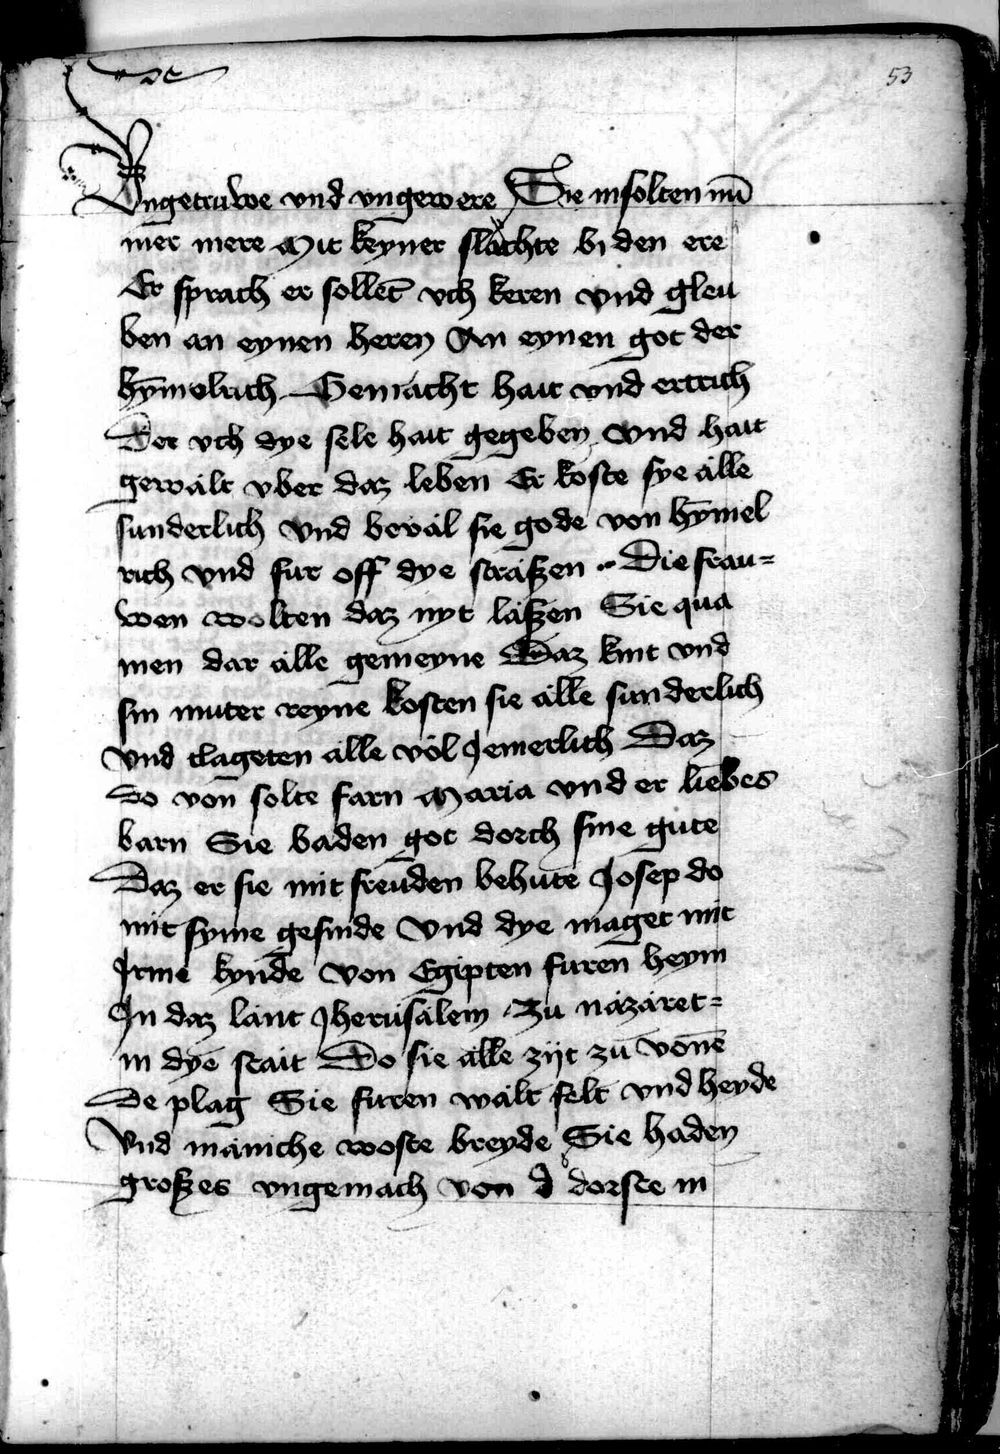 53
Vngetruwe vnd vngewere Sie insolten nū
mer mere Mit keyner slachte bi den ere
Er sprach er sollet̄ vch keren vnd gleu
ben an eynen heren An eynen got der
hȳmelrich Gemacht hait vnd ertrich
Der vch dye sele hait gegeben vnd hait
gewalt vber daz leben Er koste sye alle
sunderlich vnd beval sie gode von hȳmel
rich vnd fur off dye straßen Die frau=
wen wolten daz nyt laßen Sie qua
men dar alle gemeyne Daz kint vnd
sin muter reyne kosten sie alle sunderlich
vnd clageten alle vol Jemerlich Daz
do von solte farn Maria vnd er liebes
barn Sie baden got dorch sine gute
Daz er sie mit freuden behute Josep do
mit syme gesinde Vnd dye maget mit
Irme kynde von Egipten furen heym
In daz lant Jherusalem Zu nazaret=
in dye stait Do sie alle zijt zu vonē
De plag Sie furen walt felt vnd heyde
Vnd maniche woste breyde Sie haden
großes vngemach von d dorste in